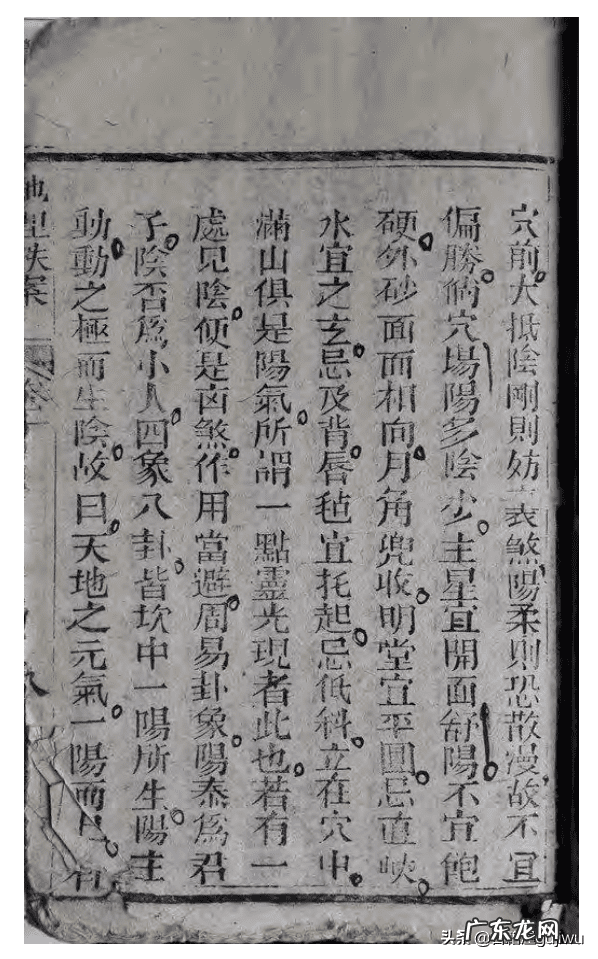 穴前大抵陰剛則妨煞陽柔則恐散漫故不宜
偏勝倘穴場陽多陰少主星宜開面舒陽不宜飽
硬外砂面面相向月角兜收明堂宜平圓忌直峽
水宜之玄忌及背唇毡宜托起忌低斜立在穴中
滿山俱是陽氣所謂一點靈光現者此也若有一
處見陰便是卤煞作用當避周易卦象陽泰為君
子陰否為小人四象八卦皆坎中一陽所生陽主
動動之極而生陰故曰天地之元氣一陽而已有
地理
广东龙网
头条